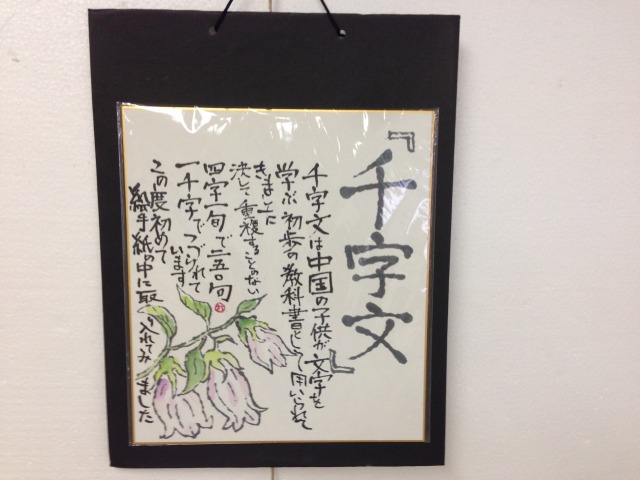 『千字文』
千字文は中国の子供が文字を
学ぶ初歩の教科書として用いられて
きました
決して重複することのない
四字一句で二五〇句
一千字でつづられて
います
この度初めて
絵手紙の中に取り入れてみました